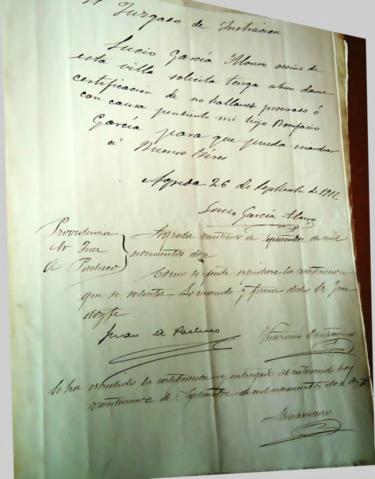 Juzgado de Instruccion
Lucio García Alonso vecino de
esta villa solicita tenga á bien darme
certificación de no hallarse procesado ó
con causa pendiente mi hijo Bonifacio
García para que pueda marchar
á Buenos Aires
Agreda 26 de Septiembre de 1912
Lucio García Alonso
Providencia
Sr Juez
Pacheco
Agreda de Septiembre de mil
novecientos doce
Como se pide expidase la certificacion
que se solicita. Lo mandó y firma dicho Sr Juez
doy fe
Juan
Se ha expedido la certificacion y entregada al interesado hoy
de Septiembre de mil novecientos doce doy fe